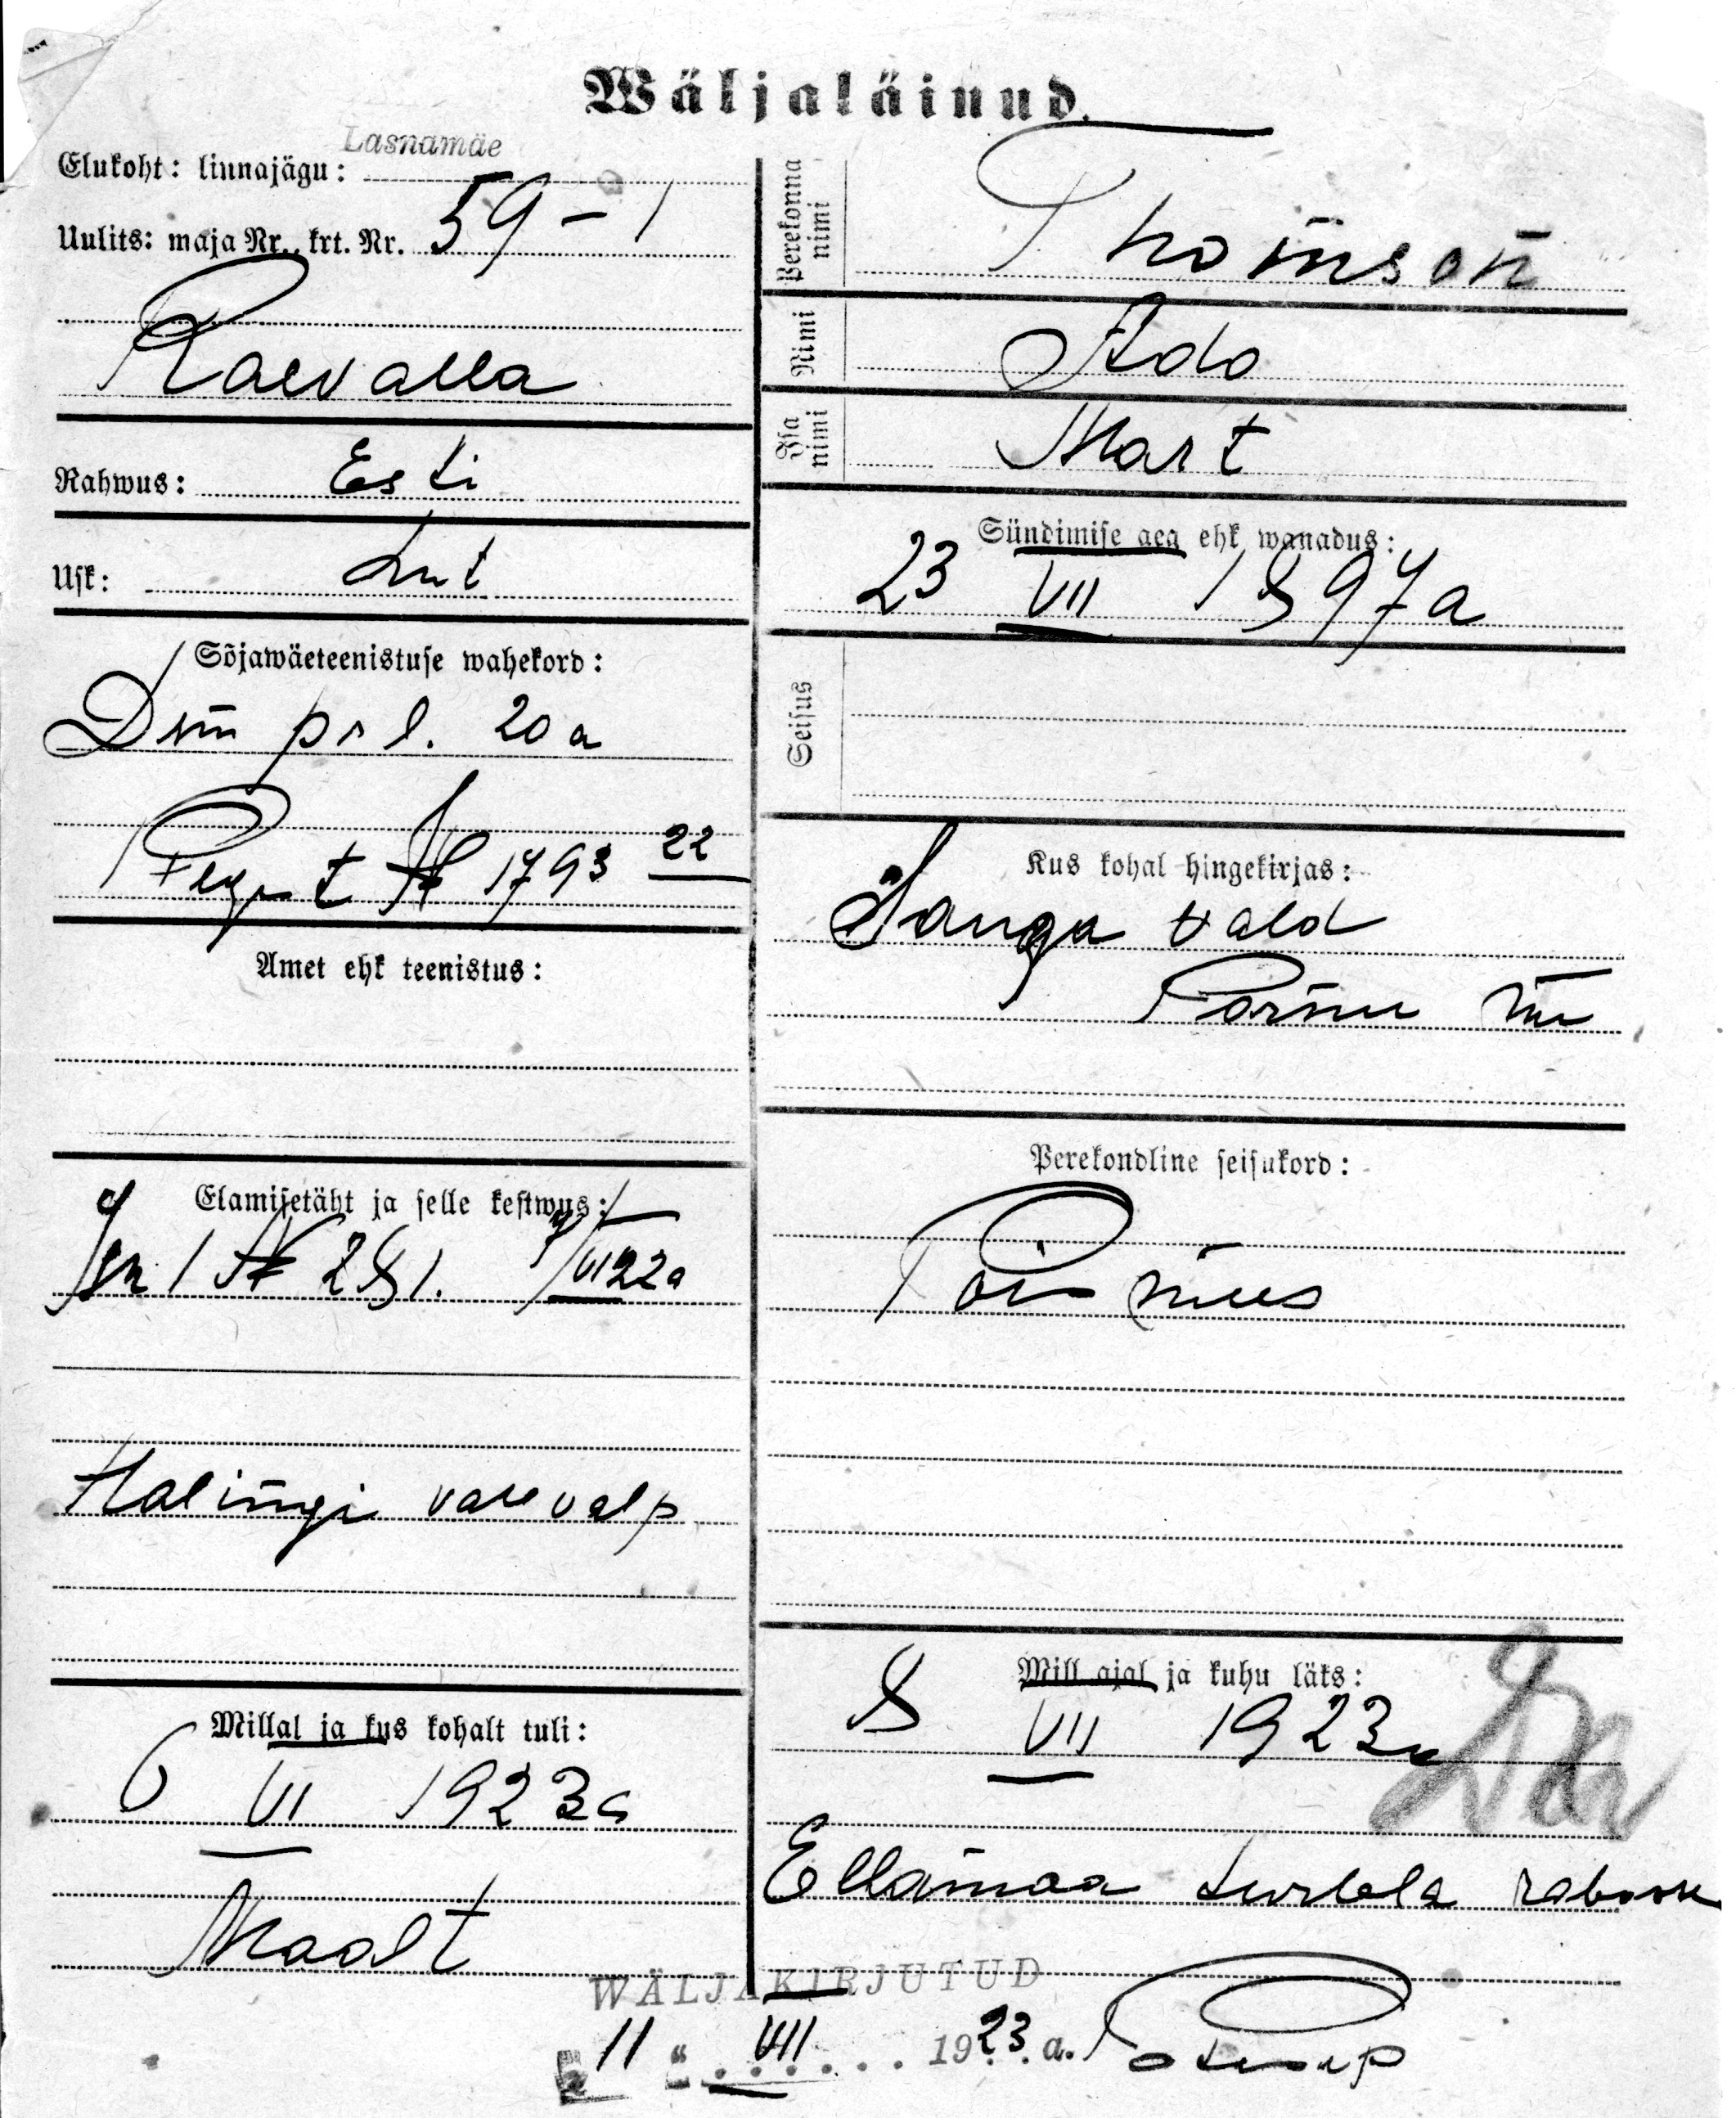 Wäljaläinud.
Elukoht: linnajägu: Lasnamäe
Uulits: maja Nr., krt. Nr. 59 – 1
Raevalla
Rahwus: Esti
Usk: Lut
Sõjawäeteenistuse wahekord:
Dem pol. 20 a
№ 1793 22
Amet ehk teenistus:
Elamisetäht ja selle kestwus:
№ 281. VI 22 a
Halingi
Millal ja kus kohalt tuli:
6 VI 1923 a
Maalt
Perekonna nimi
Thomson
Nimi
Ado
Isa nimi
Mart
Sündimise aeg ehk wanadus:
23 VII 1897 a
Seisus
Kus kohal hingekirjas:
Sauga vald
Pärnu m
Perekondline seisukord:
Poismees
Mill ajal ja kuhu läks:
8 VII 1923 a
Ellamaa turbla rabasse
WÄLJAKIRJUTUD
"11" VII 1923 a.